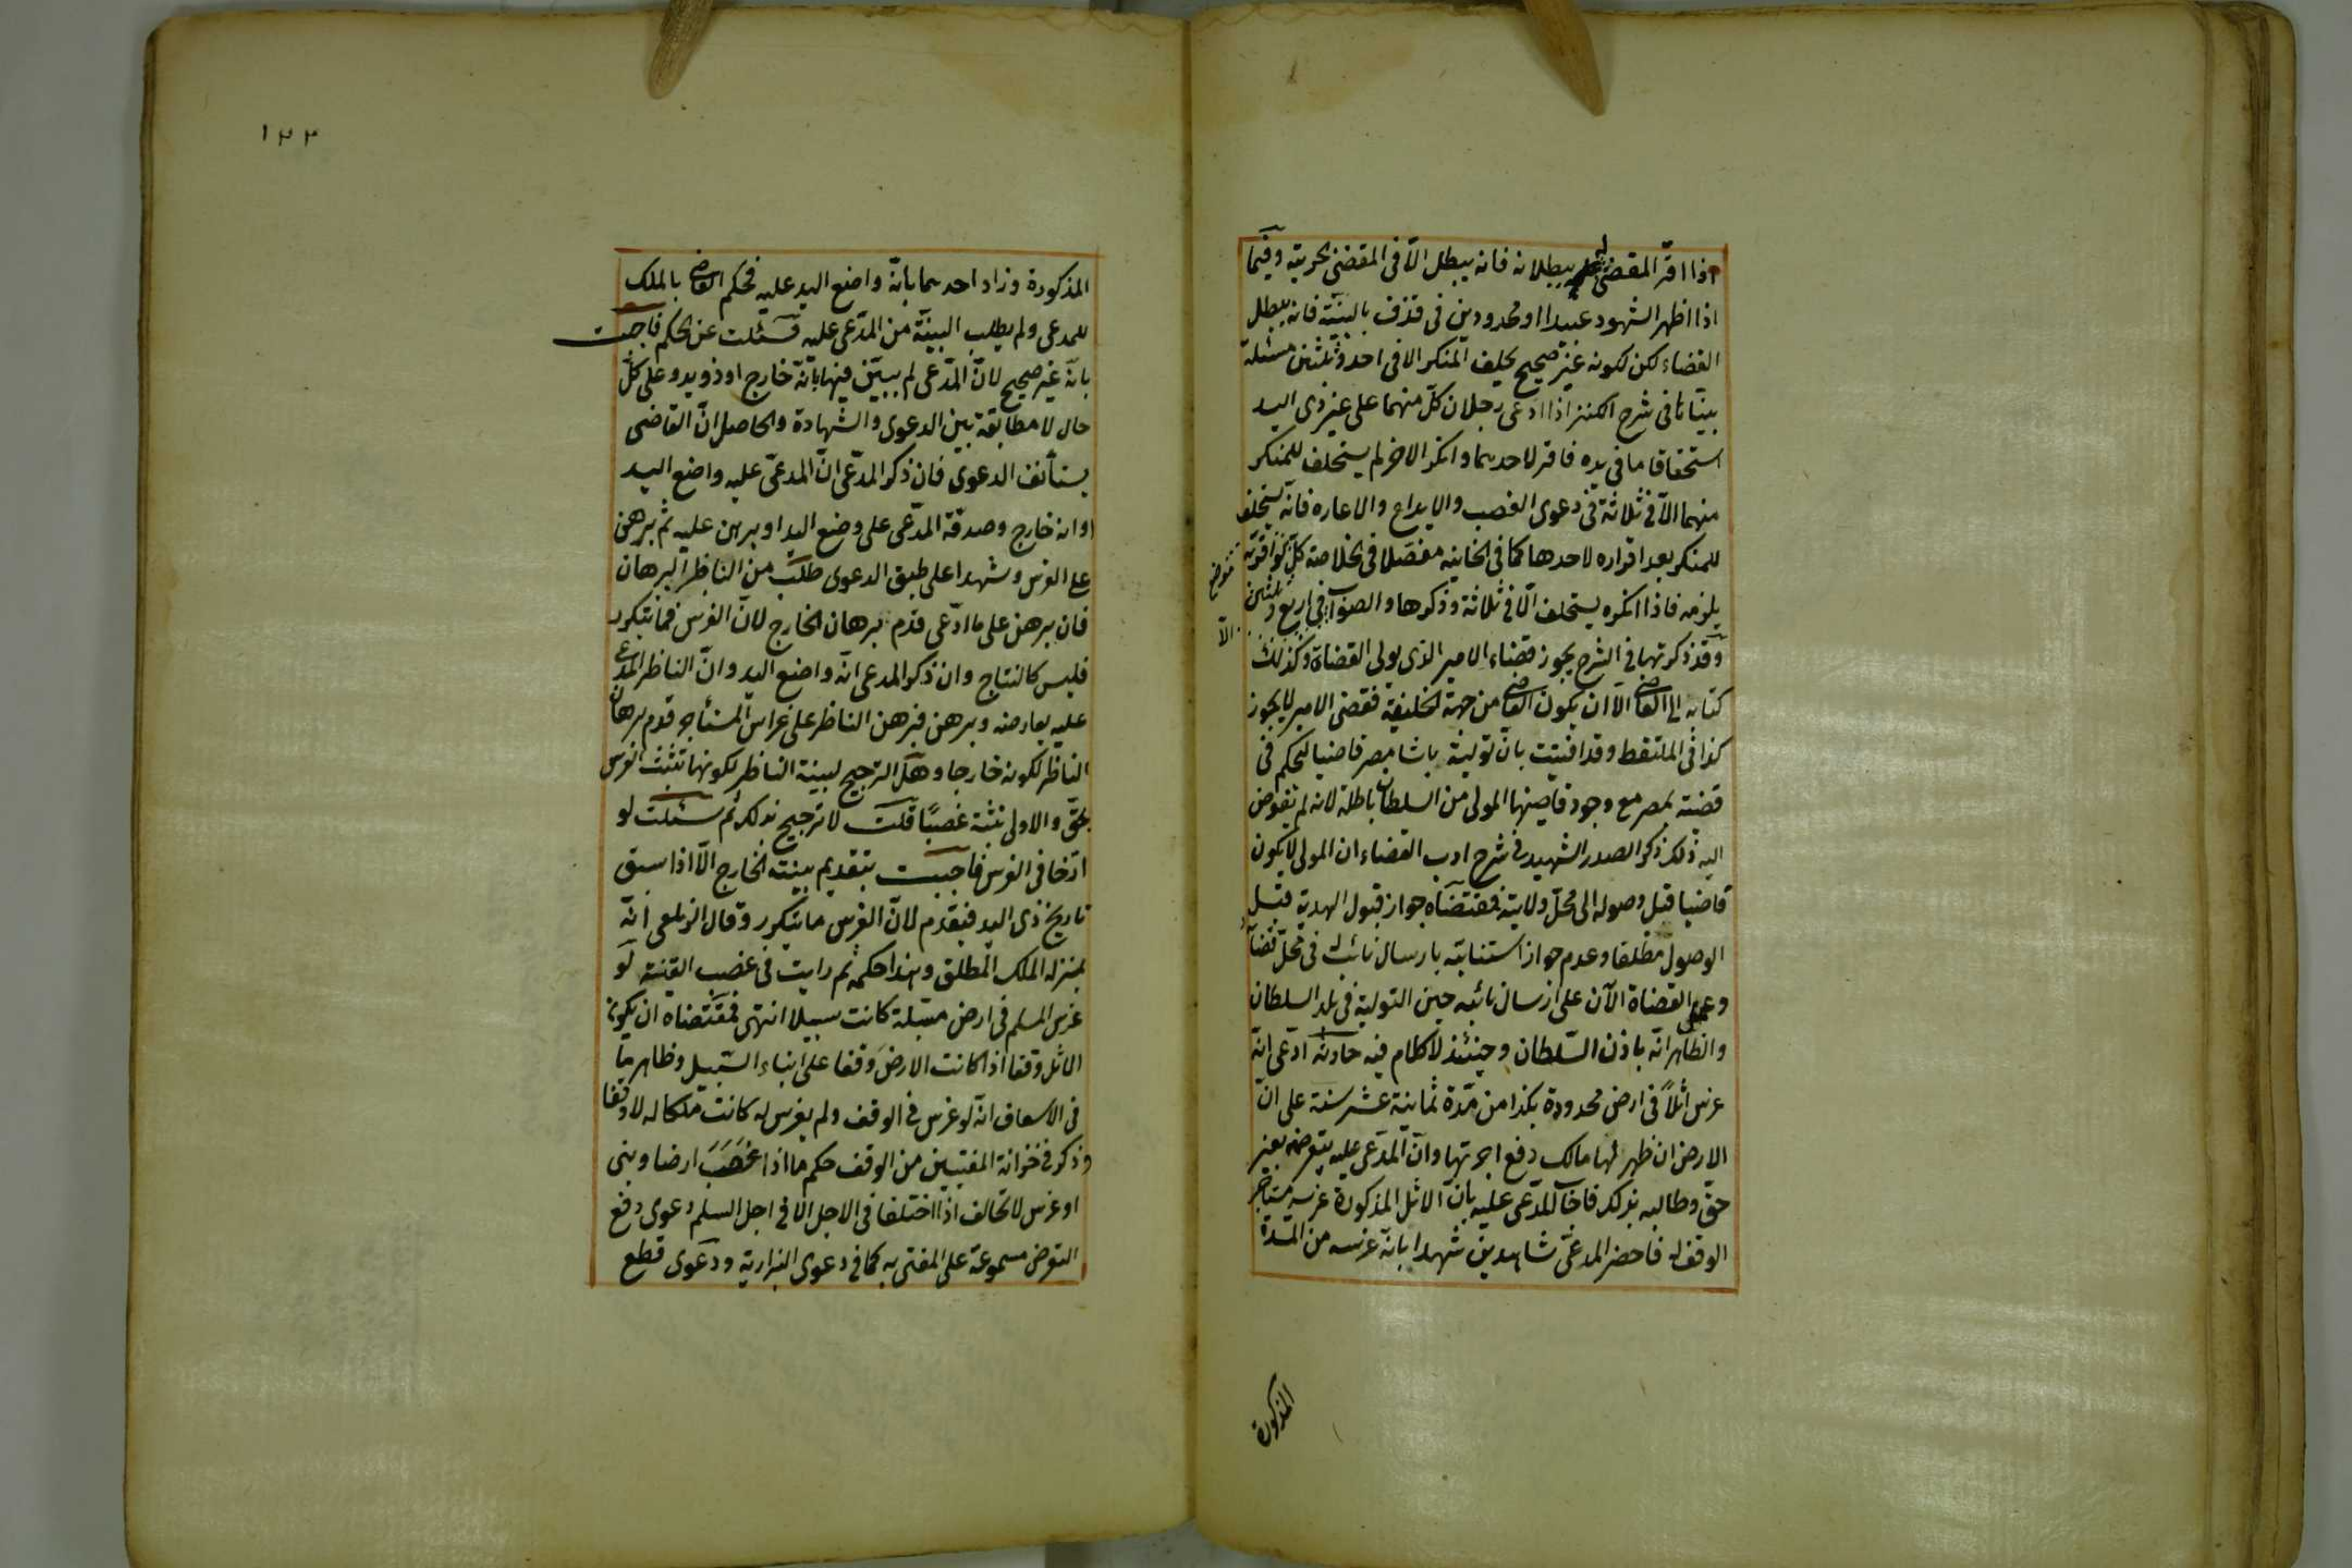 اذا اقر المقضى له ببطلانه فانه يبطل الّا فى المقضى بحريته وفيما
اذا ظهر الشهود عبيدا او محدودين فى قذف بالبيّنة فانه يبطل
القضاء لكن لكونه غير صحيح يحلف المنكر الا فى احد وثلثين مسئلة
بيّناها فى شرح الكنز اذا ادعى رجلان كلّ منهما على غير ذى اليد
استحقاقا ما فى يده فاقر لاحدهما وانكر الاخر لم يستحلف للمنكر
منهما الّا فى ثلاثة فى دعوى الغصب والايداع والاعاره فانّه يستحلف
للمنكر بعد اقراره لاحدهما كما فى الخانيه مفصّلا فى الخلاصة كلّ موضع لو اقرّ به
يلزمه فاذا انكره يستحلف الّا فى ثلاثة وذكرها والصواب الّا فى اربع وثلثين
وقد ذكرتها فى الشرح يجوز قضاء الامير الذى يولى القضاة وكذلك
كتابه الى القاضى الّا ان يكون القاضى من جهة الخليفة فقضى الامير لا يجوز
كذا فى الملتقط وقد افتيت بانّ تولية باشا مصر قاضيا ليحكم فى
قضية بمصر مع وجود قاضيها المولى من السلطان باطلة لانه لم يفوض
اليه ذلك ذكر الصدر الشهيد فى شرح ادب القضاء ان المولى لا يكون
قاضيا قبل وصوله الى محلّ ولايته فمقتضاه جواز قبول الهدية قبل
الوصول مطلقا وعدم جواز استنابته بارسال نائب له فى محلّ قضائه
وعمل القضاة الآن على ارسال نائبه حين التولية فى بلد السلطان
والظاهر انّه باذن السّلطان وحينئذ لا كلام فيه حادثة ادّعى انّه
غرس اثلاً فى ارض محدودة بكذا من مدّة ثمانية عشر سنة على انّ
الارض ان ظهر لها مالك دفع اجرتها وانّ المدّعى عليه يتعرضه بغير
حقّ وطالبه بذلك فاجاب المدّعى عليه بانّ الاثل المذكورة غرسه مستأجر
الوقف له فاحضر المدعىّ شاهدين شهدا بانّه غرسه من المدة
المذكورة
١٢٢
المذكورة وزاد احدهما بانّه واضع اليد عليه فحكم القاضى بالملك
للمدعى ولم يطلب البيّنة من المدّعى عليه فسئلت عن الحكم فاجبت
بانّه غير صحيح لانّ المدّعى لم يبيّن فيها بانّه خارج او ذو يد وعلى كلّ
حال لا مطابقة بين الدعوى والشهادة والحاصل انّ القاضى
يستأنف الدعوى فان ذكر المدّعى انّ المدعىّ عليه واضع اليد
وانه خارج وصدقه المدّعى على وضع اليد او برهن عليه ثم برهن
على الغرس وشهدا على طبق الدعوى طلب من الناظر البرهان
فان برهن على ما ادّعى قدّم برهان الخارج لانّ الغرس فما يتكرر
فليس كالنتاج وان ذكر المدعى انّه واضع اليد وانّ الناظر المدعى
عليه يعارضه وبرهن فبرهن الناظر على غراس المستأجر قدم برهان
الناظر لكونه خارجا وهل الترجيح لبينة الناظر لكونها تثبت الغرس
بحقّ والاولى تثبته غصبًا قلت لا ترجيح بذلك ثم سئلت لو
ارّخا فى الغرس فاجبت بتقديم بينة الخارج الّا اذا سبق
تاريخ ذى اليد فيقدم لانّ الغرس ما يتكرر وقال الزيلعى انّه
بمنزلة الملك المطلق وهذا حكمه ثم رايت فى غصب القنية لو
غرس المسلم فى ارض مسبّلة كانت سبيلا انتهى فمقتضاه ان يكون
الاثل وقفا اذا كانت الارض وقفا على ابناء السّبيل وظاهر ما
فى الاسعاف انّه لو غرس فى الوقف ولم يغرس له كانت ملكا له لا وقفا
وذكر فى خزانة المفتيين من الوقف حكم ما اذا غصب ارضا وبنى
او غرس لا تحالف اذا اختلفا فى الاجل الا فى اجل السلم دعوى دفع
التعرض مسموعة على المفتى به كما فى دعوى البزازية ودعوى قطع